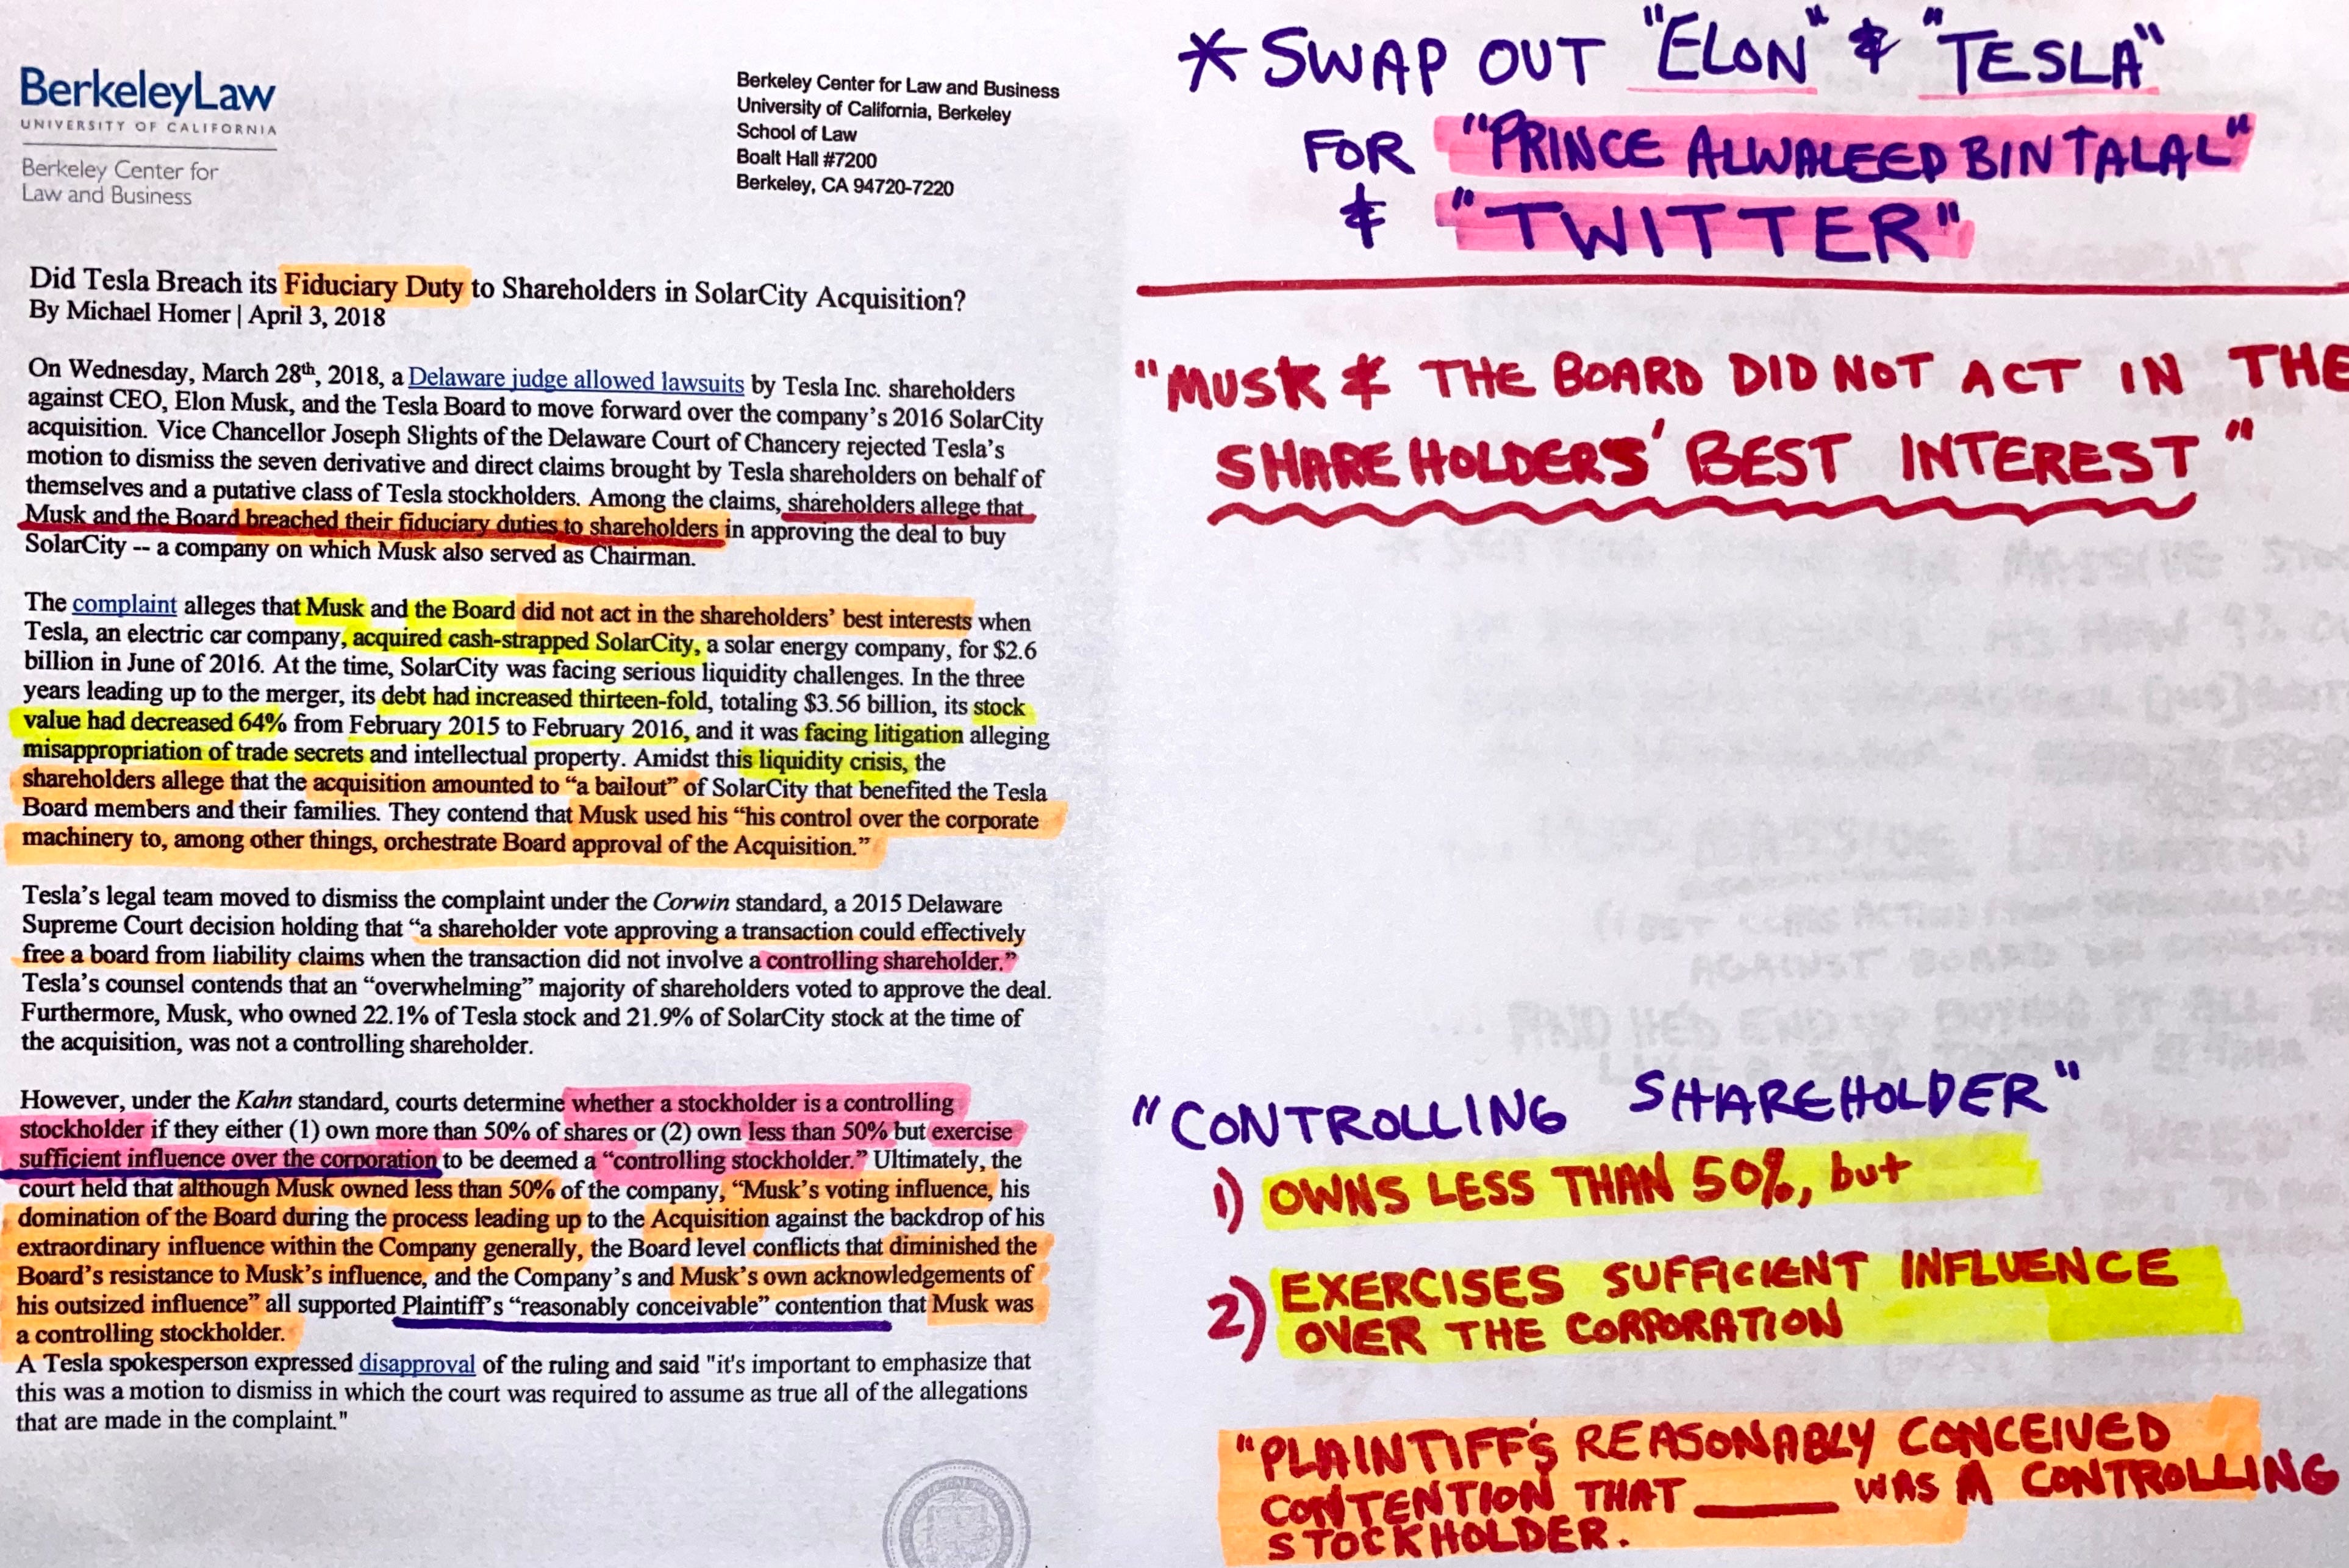 BerkeleyLaw
UNIVERSITY OF CALIFORNIA
Berkeley Center for
Law and Business
Berkeley Center for Law and Business
University of California, Berkeley
School of Law
Boalt Hall #7200
Berkeley, CA 94720-7220
Did Tesla Breach its Fiduciary Duty to Shareholders in SolarCity Acquisition?
By Michael Homer | April 3, 2018
On Wednesday, March 28th, 2018, a Delaware judge allowed lawsuits by Tesla Inc. shareholders
against CEO, Elon Musk, and the Tesla Board to move forward over the company's 2016 SolarCity
acquisition. Vice Chancellor Joseph Slights of the Delaware Court of Chancery rejected Tesla's
motion to dismiss the seven derivative and direct claims brought by Tesla shareholders on behalf of
themselves and a putative class of Tesla stockholders. Among the claims, shareholders allege that
Musk and the Board breached their fiduciary duties to shareholders in approving the deal to buy
SolarCity -- a company on which Musk also served as Chairman.
The complaint alleges that Musk and the Board did not act in the shareholders' best interests when
Tesla, an electric car company, acquired cash-strapped SolarCity, a solar energy company, for $2.6
billion in June of 2016. At the time, SolarCity was facing serious liquidity challenges. In the three
years leading up to the merger, its debt had increased thirteen-fold, totaling $3.56 billion, its stock
value had decreased 64% from February 2015 to February 2016, and it was facing litigation alleging
misappropriation of trade secrets and intellectual property. Amidst this liquidity crisis, the
shareholders allege that the acquisition amounted to “a bailout” of SolarCity that benefited the Tesla
Board members and their families. They contend that Musk used his “his control over the corporate
machinery to, among other things, orchestrate Board approval of the Acquisition.”
Tesla's legal team moved to dismiss the complaint under the Corwin standard, a 2015 Delaware
Supreme Court decision holding that “a shareholder vote approving a transaction could effectively
free a board from liability claims when the transaction did not involve a controlling shareholder.”
Tesla's counsel contends that an “overwhelming” majority of shareholders voted to approve the deal.
Furthermore, Musk, who owned 22.1% of Tesla stock and 21.9% of SolarCity stock at the time of
the acquisition, was not a controlling shareholder.
However, under the Kahn standard, courts determine whether a stockholder is a controlling
stockholder if they either (1) own more than 50% of shares or (2) own less than 50% but exercise
sufficient influence over the corporation to be deemed a “controlling stockholder.” Ultimately, the
court held that although Musk owned less than 50% of the company, “Musk's voting influence, his
domination of the Board during the process leading up to the Acquisition against the backdrop of his
extraordinary influence within the Company generally, the Board level conflicts that diminished the
Board's resistance to Musk's influence, and the Company's and Musk's own acknowledgements of
his outsized influence” all supported Plaintiff's “reasonably conceivable” contention that Musk was
a controlling stockholder.
A Tesla spokesperson expressed disapproval of the ruling and said "it's important to emphasize that
this was a motion to dismiss in which the court was required to assume as true all of the allegations
that are made in the complaint."
* SWAP OUT "ELON" & "TESLA"
FOR "PRINCE ALWALEED BIN TALAL"
& "TWITTER"
"MUSK & THE BOARD DID NOT ACT IN THE
SHAREHOLDERS' BEST INTEREST"
"CONTROLLING SHAREHOLDER"
1) OWNS LESS THAN 50%, but
2) EXERCISES SUFFICIENT INFLUENCE
OVER THE CORPORATION
"PLAINTIFF'S REASONABLY CONCEIVED
CONTENTION THAT ____ WAS A CONTROLLING
STOCKHOLDER.